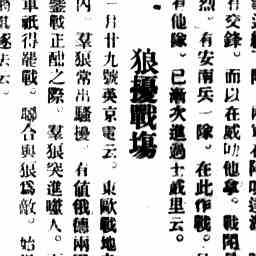 有交鋒。而以在威
烈。有安南兵一隊。在此作戰。
有他隊。已漸次進過士威里云。
狼擾戰塲
一月廿九號英京電云。東歐戰地
內。羣狼常出騷擾。有値俄德兩
鏖戰正酣之際。羣狼突進噬人。
軍祇得罷戰。聯合與狼爲敵。始
逐去云。